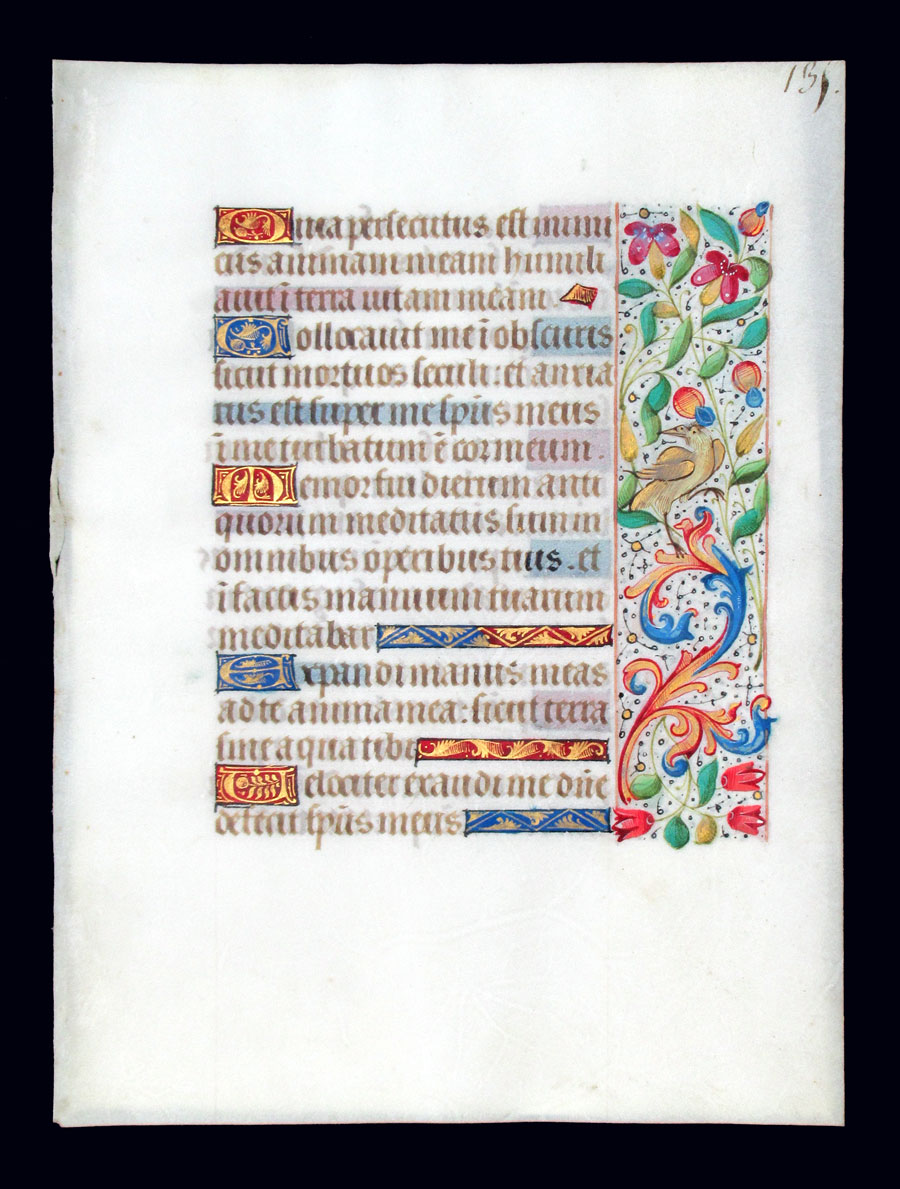 135.
Quia persecutus est inimi
cus animam meam humili
auit ī terra uitam meam.
Collocauit me ī obscuris
sicut mortuos seculi: et anxia
tus est super me sp̄us meus
ī me turbatum ē cor meum.
Memor fui dierum anti
quorum meditatus sum in
omnibus operibus tuis. et
ī factis manuum tuarum
meditabar
Expandi manus meas
ad te anima mea: sicut terra
sine aqua tibi
Velociter exaudi me dn̄e
defecit sp̄us meus